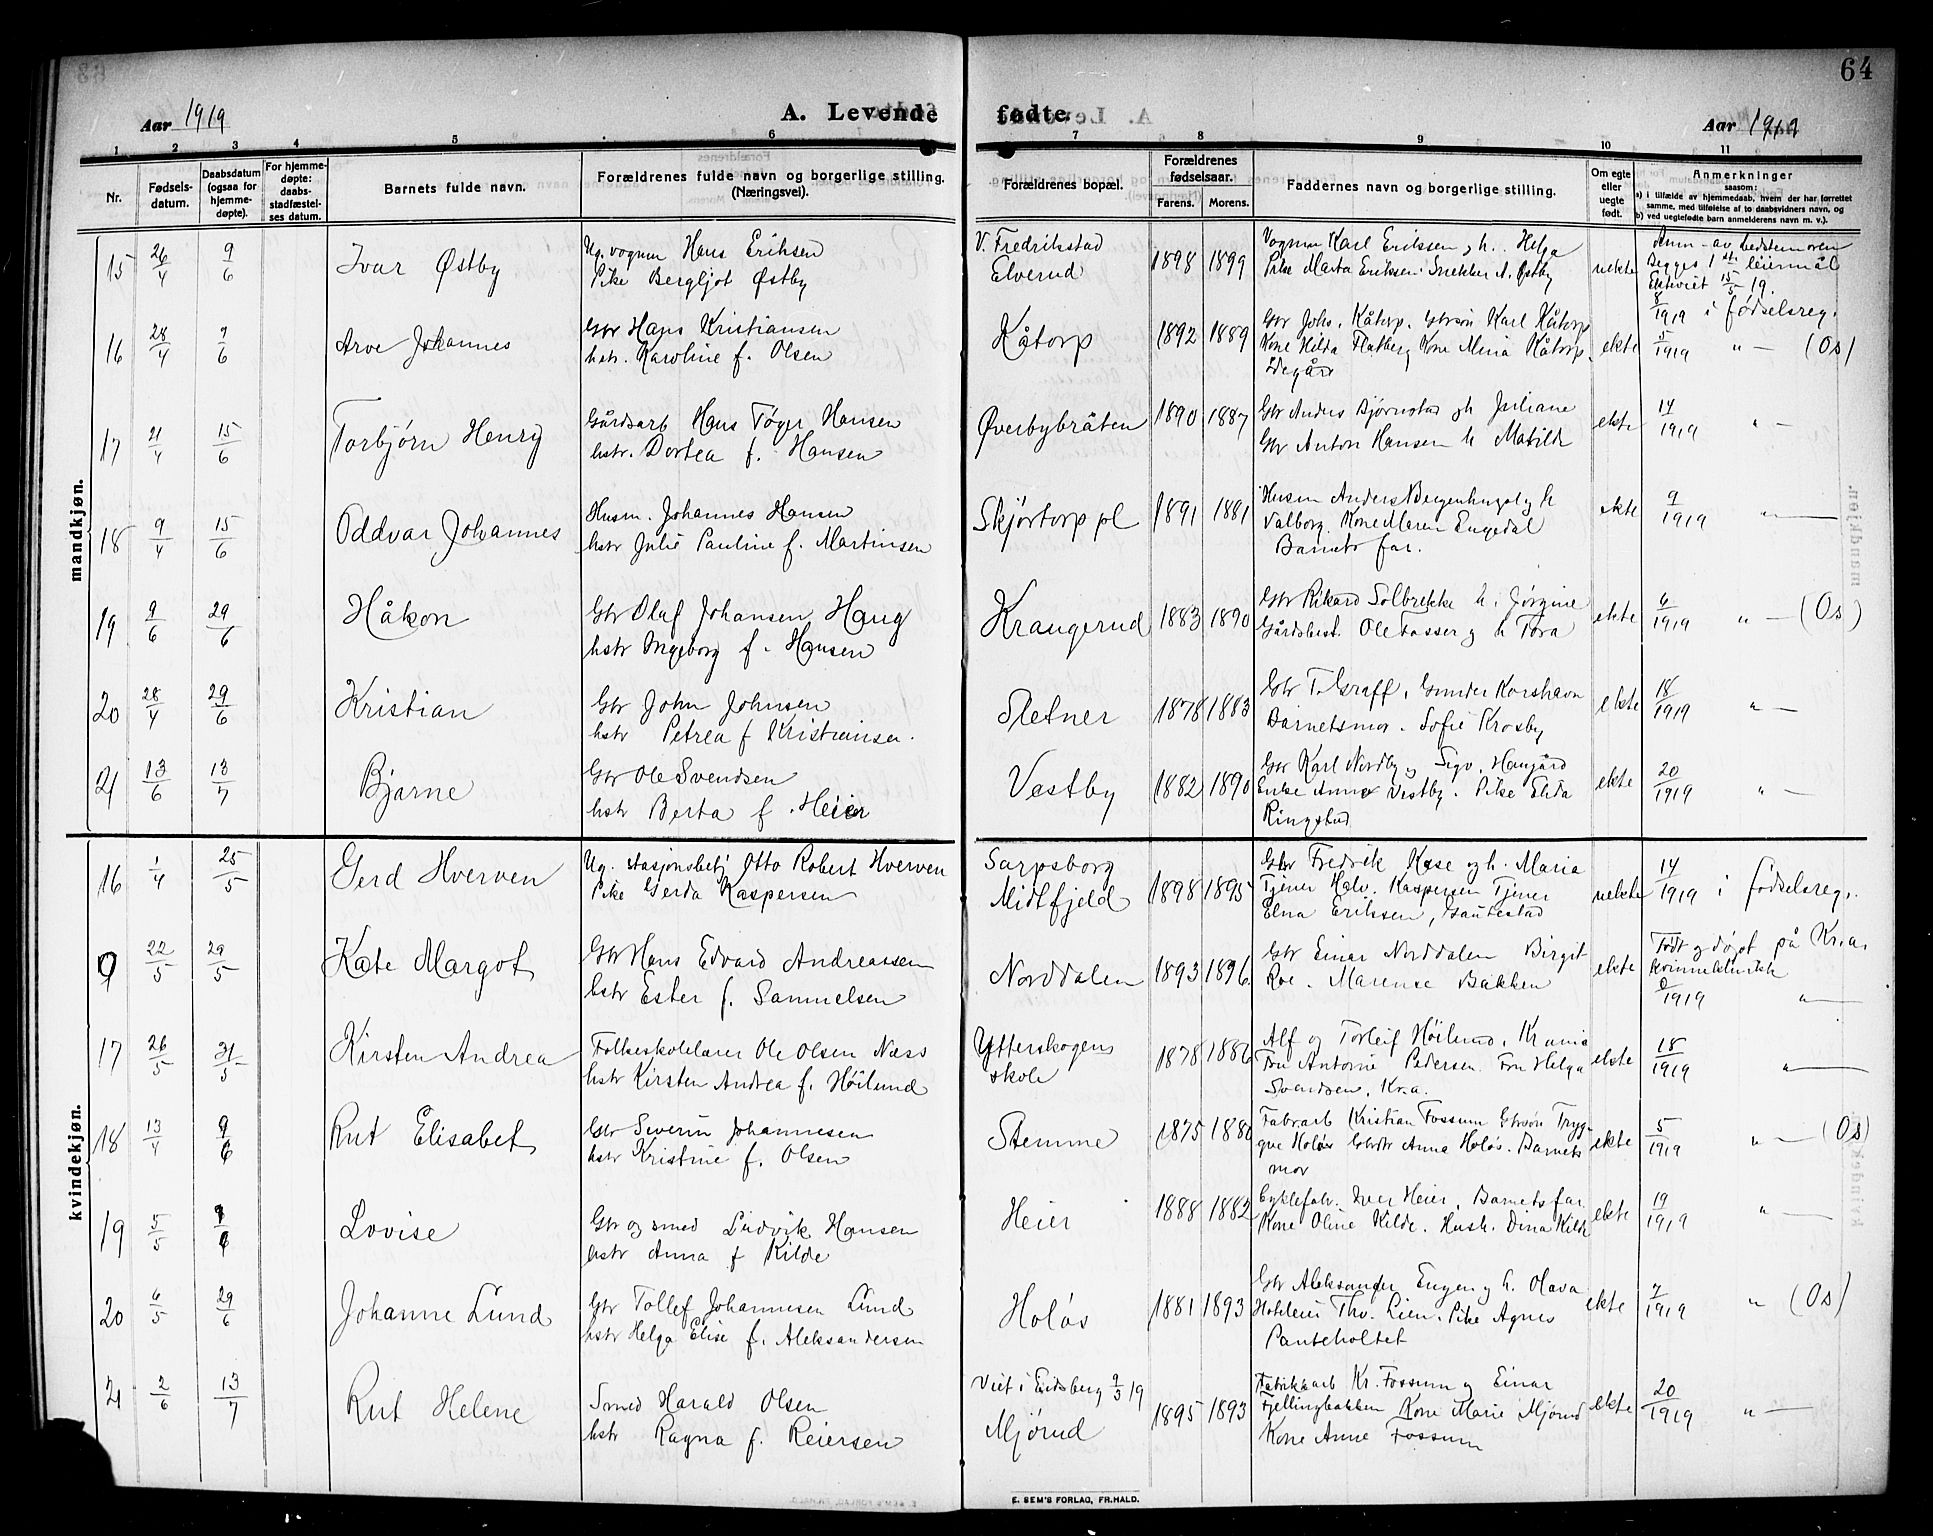 64
Aar 1919
A. Levende fødte.
Aar 1919
1 2 3 4 5 6 7 8 9 10 11
Nr.
Fødsels-
datum.
Daabsdatum
(ogsaa for
hjemme-
døpte).
For hjemme-
døpte:
daabs-
stadfæstel-
ses datum.
Barnets fulde navn.
Forældrenes fulde navn og borgerlige stilling.
(Næringsvei).
Forældrenes bopæl.
Forældrenes
fødselsaar.
Farens. Morens.
Faddernes navn og borgerlige stilling.
Om egte
eller
uegte
født.
Anmerkninger
saasom:
a) i tilfælde av hjemmedaab, hvem der har forrettet
samme, med tilføielse af to daabsvidners navn, og
b) ved uegtefødte barn anmelderens navn m. v.).
mandkjøn.
15 26/4 9/6 Ivar Østby
Ug. vognm Hans Eriksen
Pike Bergljot Østby
V. Fredrikstad
Elverud
1898 1899
Vognm Karl Erikssen og h. Helga
Pike Marta Eriksen. Snekker A. Østby
uekte
Anm av bedstemoren
Begges 1ste leiermål
Ekteviet 15/5 19.
8/1919 i fødselsreg.
16 28/4 9/6 Arve Johannes
Gbr Hans Kristiansen
hstr. Karoline f. Olsen
Kåtorp
1892 1889
Gbr Johs. Kåtorp. Gbrsøn Karl Kåtorp
Kone Hilda Flatberg Kone Mina Kåtorp
Ødegård
ekte
5/1919 " — (Os)
17 21/4 15/6 Torbjørn Henry
Gårdsarb Hans Tøger Hansen
hstr. Dortea f. Hansen
Øverbybråten
1890 1887
Gbr Anders Bjørnstad og h Juliane
Gbr Anton Hansen h Matilde
ekte
14/1919 " —
18 9/4 15/6 Oddvar Johannes
Husm. Johannes Hansen
hstr Julie Pauline f. Martinsen
Skjørtorp pl
1891 1881
Husm Anders Bergenhugol og h
Valborg. Kone Maren Engedal
Barnets far.
ekte
9/1919 " —
19 9/6 29/6 Håkon
Gbr Olaf Johansen Haug
hstr Ingeborg f. Hansen
Krangerud
1883 1890
Gbr Rikard Solbrekke h. Jørgine
Gårdsbest. Ole Fosser og h Tora
ekte
6/1919 " — (Os)
20 28/4 29/6 Kristian
Gbr John Johnsen
hstr Petrea f Kristiansen.
Sletner
1878 1883
Gbr T. Graff, Gunder Korshavn
Barnetsmor. Sofie Krosby
ekte
18/1919 " —
21 13/6 13/7 Bjarne
Gbr Ole Svendsen
hstr Berta f. Heier
Vestby
1882 1890
Gbr Karl Nordby og Sigv. Haugård
Enke Anna Vestby. Pike Elida
Ringstad
ekte
20/1919 " —
kvindekjøn.
16 1/4 25/5 Gerd Hverven
Ug. stasjonsbetj Otto Robert Hverven
Pike Gerda Kaspersen
Sarpsborg
Midtfjeld
1898 1895
Gbr Fredrik Kase og h. Maria
Tjener Halv. Kaspersen Tjener
Elna Eriksen, Gautestad
uekte
14/1919 i fødselsreg.
9 22/5 29/5 Kate Margot
Gbr Hans Edvard Andreassen
hstr Ester f. Samuelsen
Norddalen
1893 1896.
Gbr Einar Norddalen Birgit
Roe. Marense Bakken
ekte
Født og døpt på Kr.a.
kvinneklinikk
8/1919 " —
17 26/5 31/5 Kirsten Andrea
Folkeskolelærer Ole Olsen Næss
hstr Kirsten Andrea f. Høilund
Ytterskogens
skole
1878 1886
Alf og Torleif Høilund, Kr.ania
Fru Antonie Pedersen. Fru Helga
Svendsen, Kr.a.
ekte
18/1919 " —
18 13/4 9/6 Rut Elisabet
Gbr Severin Johannesen
hstr Kristine f. Olsen
Stemme
1875 1880
Fabrarb Kristian Fossum Gbrsøn Tryg-
gve Holøs Gbrdtr Anna Holøs. Barnets
mor
ekte
5/1919 " — (Os)
19 5/5 9/6 Lovise
Gbr og smed Ludvik Hansen
hstr Anna f Kilde
Heier
1888 1882
Cyklefabr. Iver Heier, Barnets far
Kone Oline Kilde. Hush. Dina Kilde
ekte
19/1919 " —
20 6/5 29/6 Johanne Lund
Gbr Tollef Johannesen Lund
hstr Helga Elise f. Aleksandersen
Holøs
1881 1893
Gbr Aleksander Engen og h. Olava
Hotelleier Thv. Lien. Pike Agnes
Panteholtet
ekte
7/1919 " (Os)
21 2/6 13/7 Rut Helene
Smed Harald Olsen
hstr Ragna f. Reiersen
Viet i Eidsberg 9/3 19
Mjørud
1895 1893
Fabrikkarb Kr. Fossum og Einar
Fjellingbakken Kone Marie Mjørud
Kone Anne Fossum
ekte
20/1919 " —
E. SEM'S FORLAG, FR.HALD.